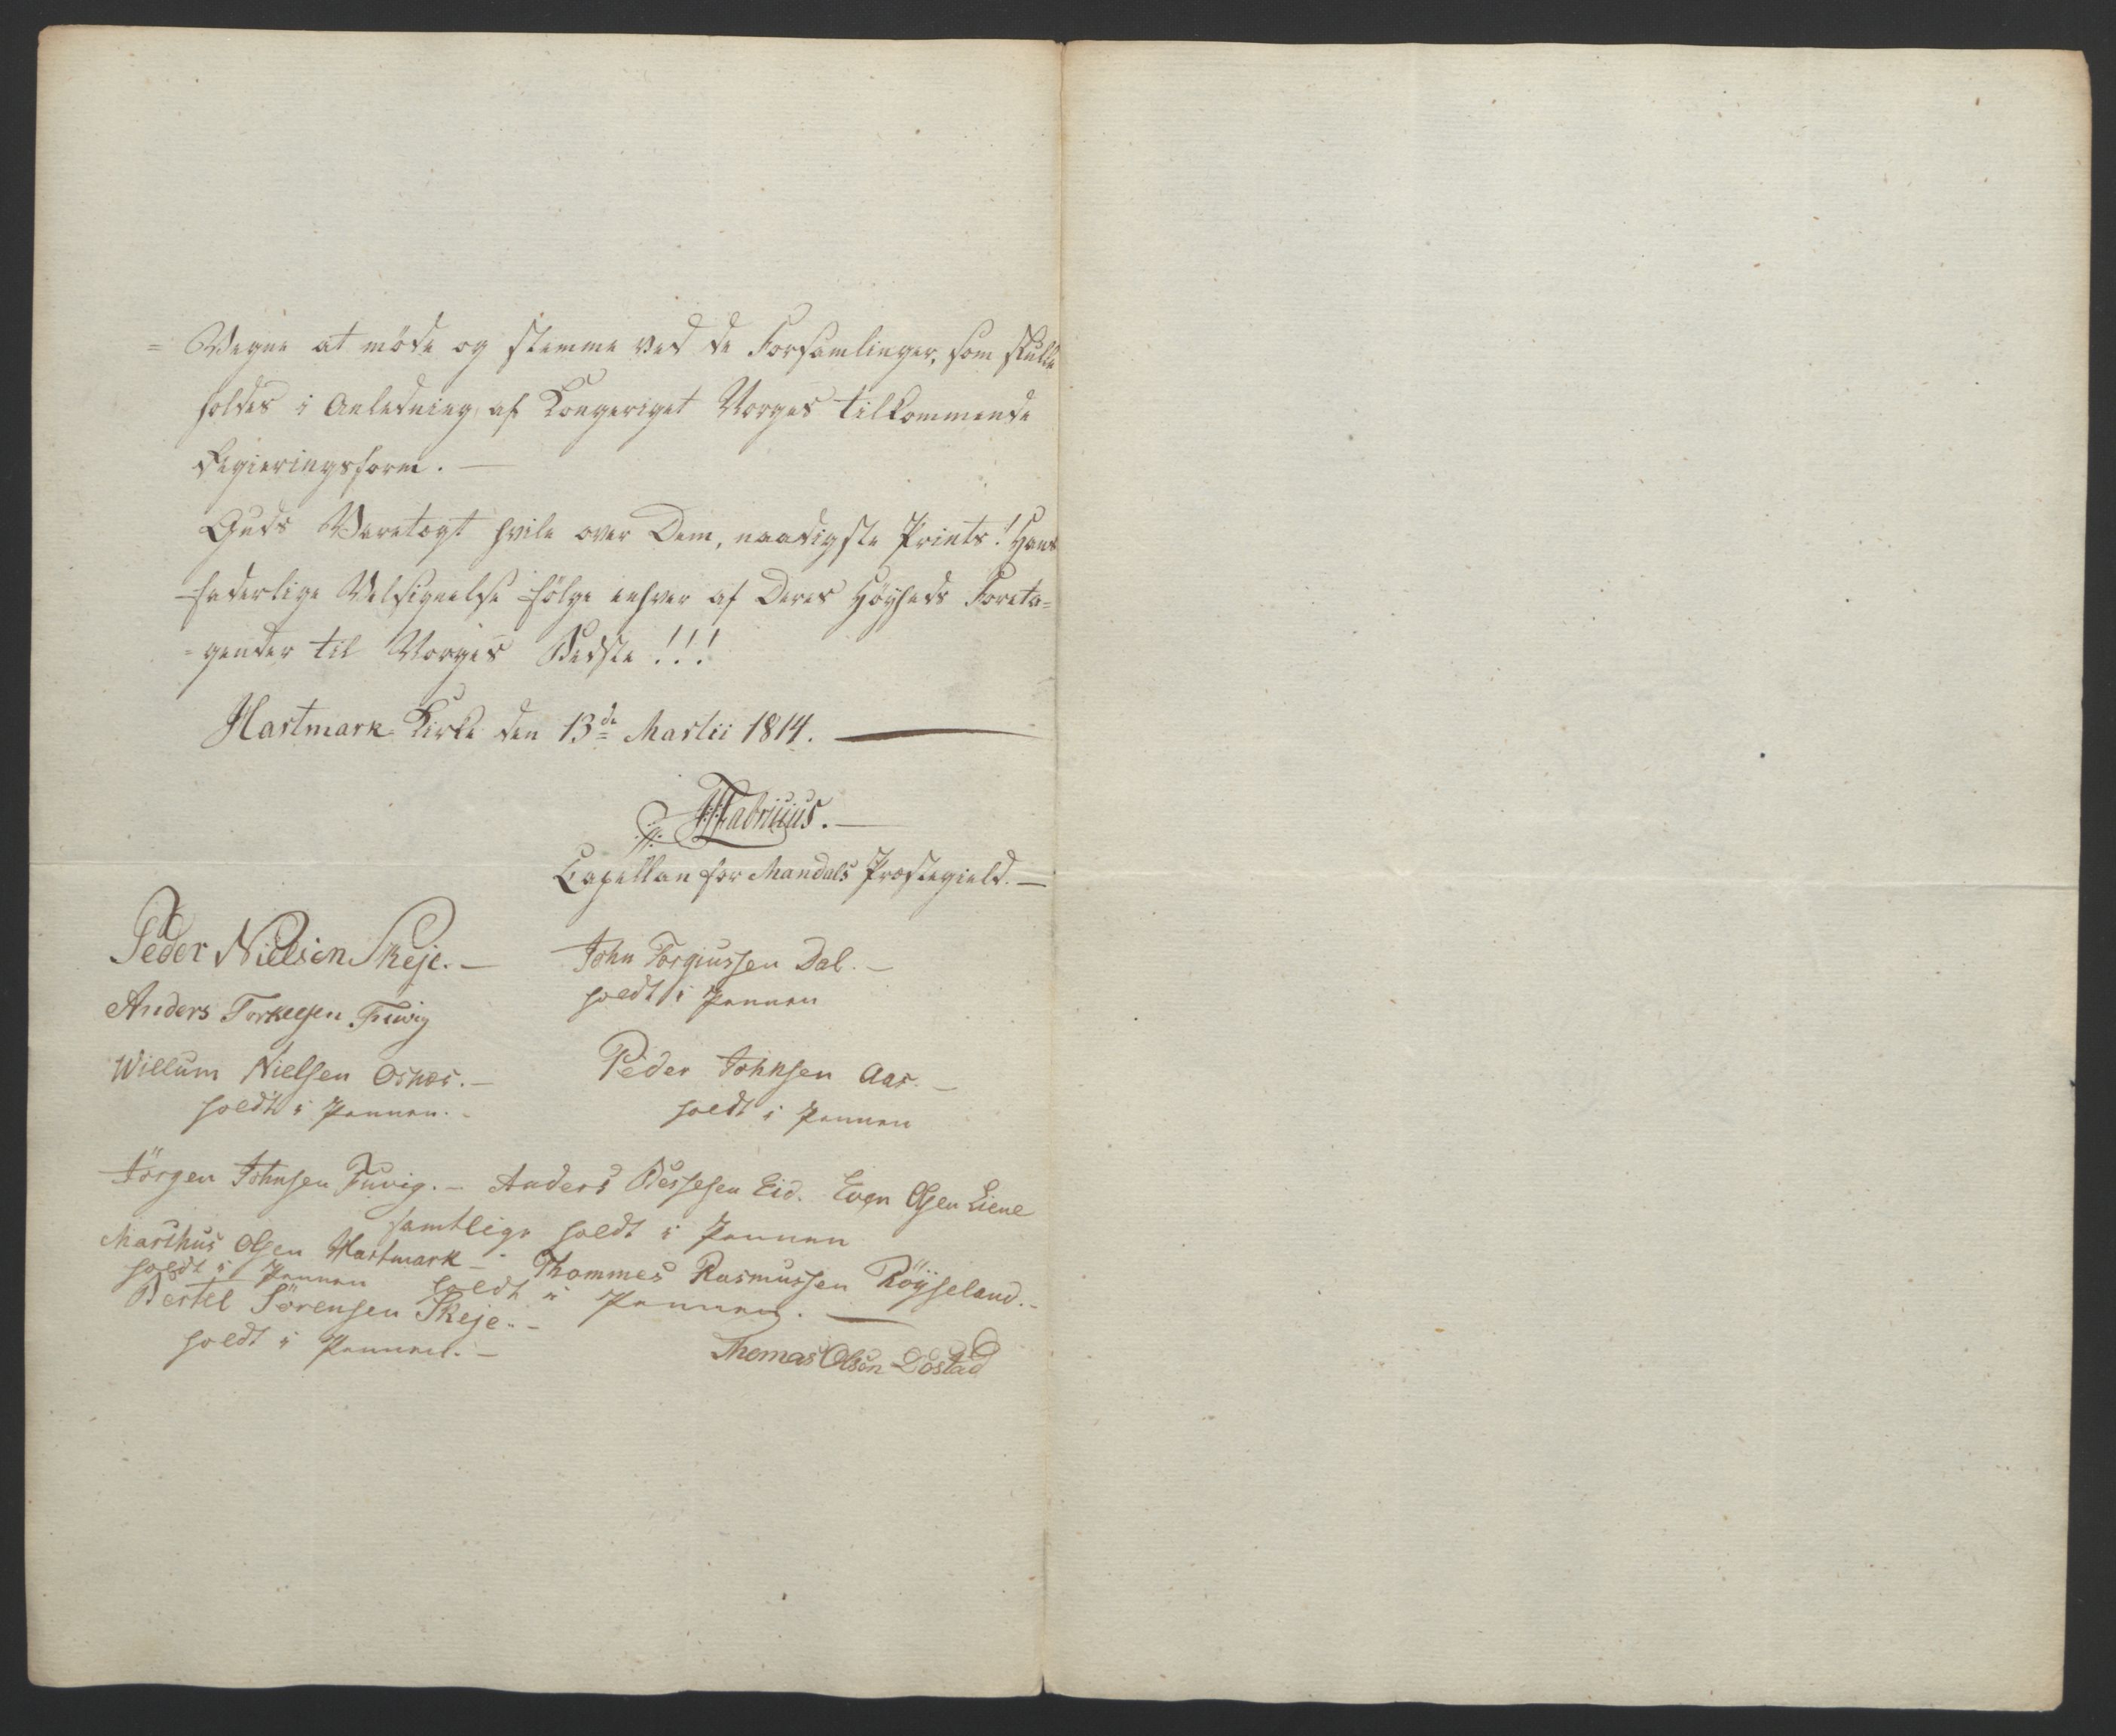 = Vegne at möde og stemme ved de Forsamlinger, som skulle
holdes i Anledning af Kongeriget Norges tilkommende
Regieringsform. —
Guds Varetægt hvile over Dem, naadigste Prints! Hans
faderlige Velsignelse følge enhver af Deres Höÿheds Foreta=
=gender til Norges Bedste!!!
Hartmark Kirke den 13de Martii 1814. —
Fabricius. —
Capellan for Mandals Præstegield. —
Peder Nielsen Skeje. —
John Torgiussen Dal. —
holdt i Pennen
Anders Torkelsen Fuvig
Willum Nielsen Osnæs. —
holdt i Pennen. -
Peder Johnsen Aas. —
holdt i Pennen
Jörgen Johnsen Fuvig. — Anders Bessesen Eid. Even Olsen Liene
samtlige holdt i Pennen
Marthus Olsen Hartmark —
holdt i Pennen
Thommes Rasmussen Röÿseland. -
holdt i Pennen. —
Bertel Sörensen Skeje. -
holdt i Pennen. —
Thomas Olsen